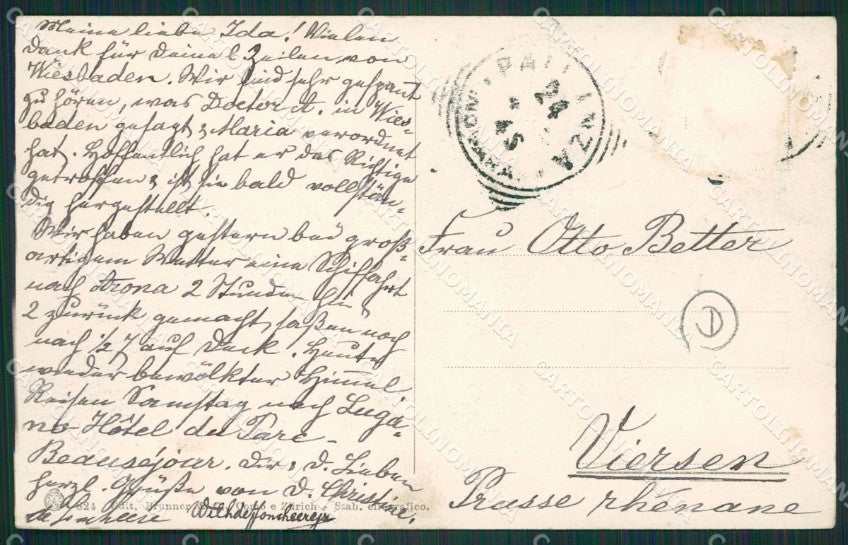 Meine liebe Ida! Vielen
Dank für Deine l. Zeilen von
Wiesbaden. Wir sind sehr gespannt
zu hören, was Doctor A. in Wies-
baden gesagt & Maria verordnet
hat. Hoffentlich hat er das Richtige
getroffen & ist sie bald vollstän-
dig hergestellt.
Wir haben gestern bei groß-
artigem Wetter eine Schiffahrt
nach Arona 2 Stunden hin
2 zurück gemacht, saßen noch
nach ½ 7 auf Deck. Heute
wieder bewölkter Himmel
Reisen Samstag nach Luga-
no-Hôtel du Parc-
Beauséjour. Dir & D. Lieben
herzl. Grüße von D. Christine.
824 Edit. Brunner & C. Como e Zürich - Stab. eliografico.
PALLANZA
24
Frau Otto Better
D
Viersen
Prusse rhénane
CARTOLINOMANIA